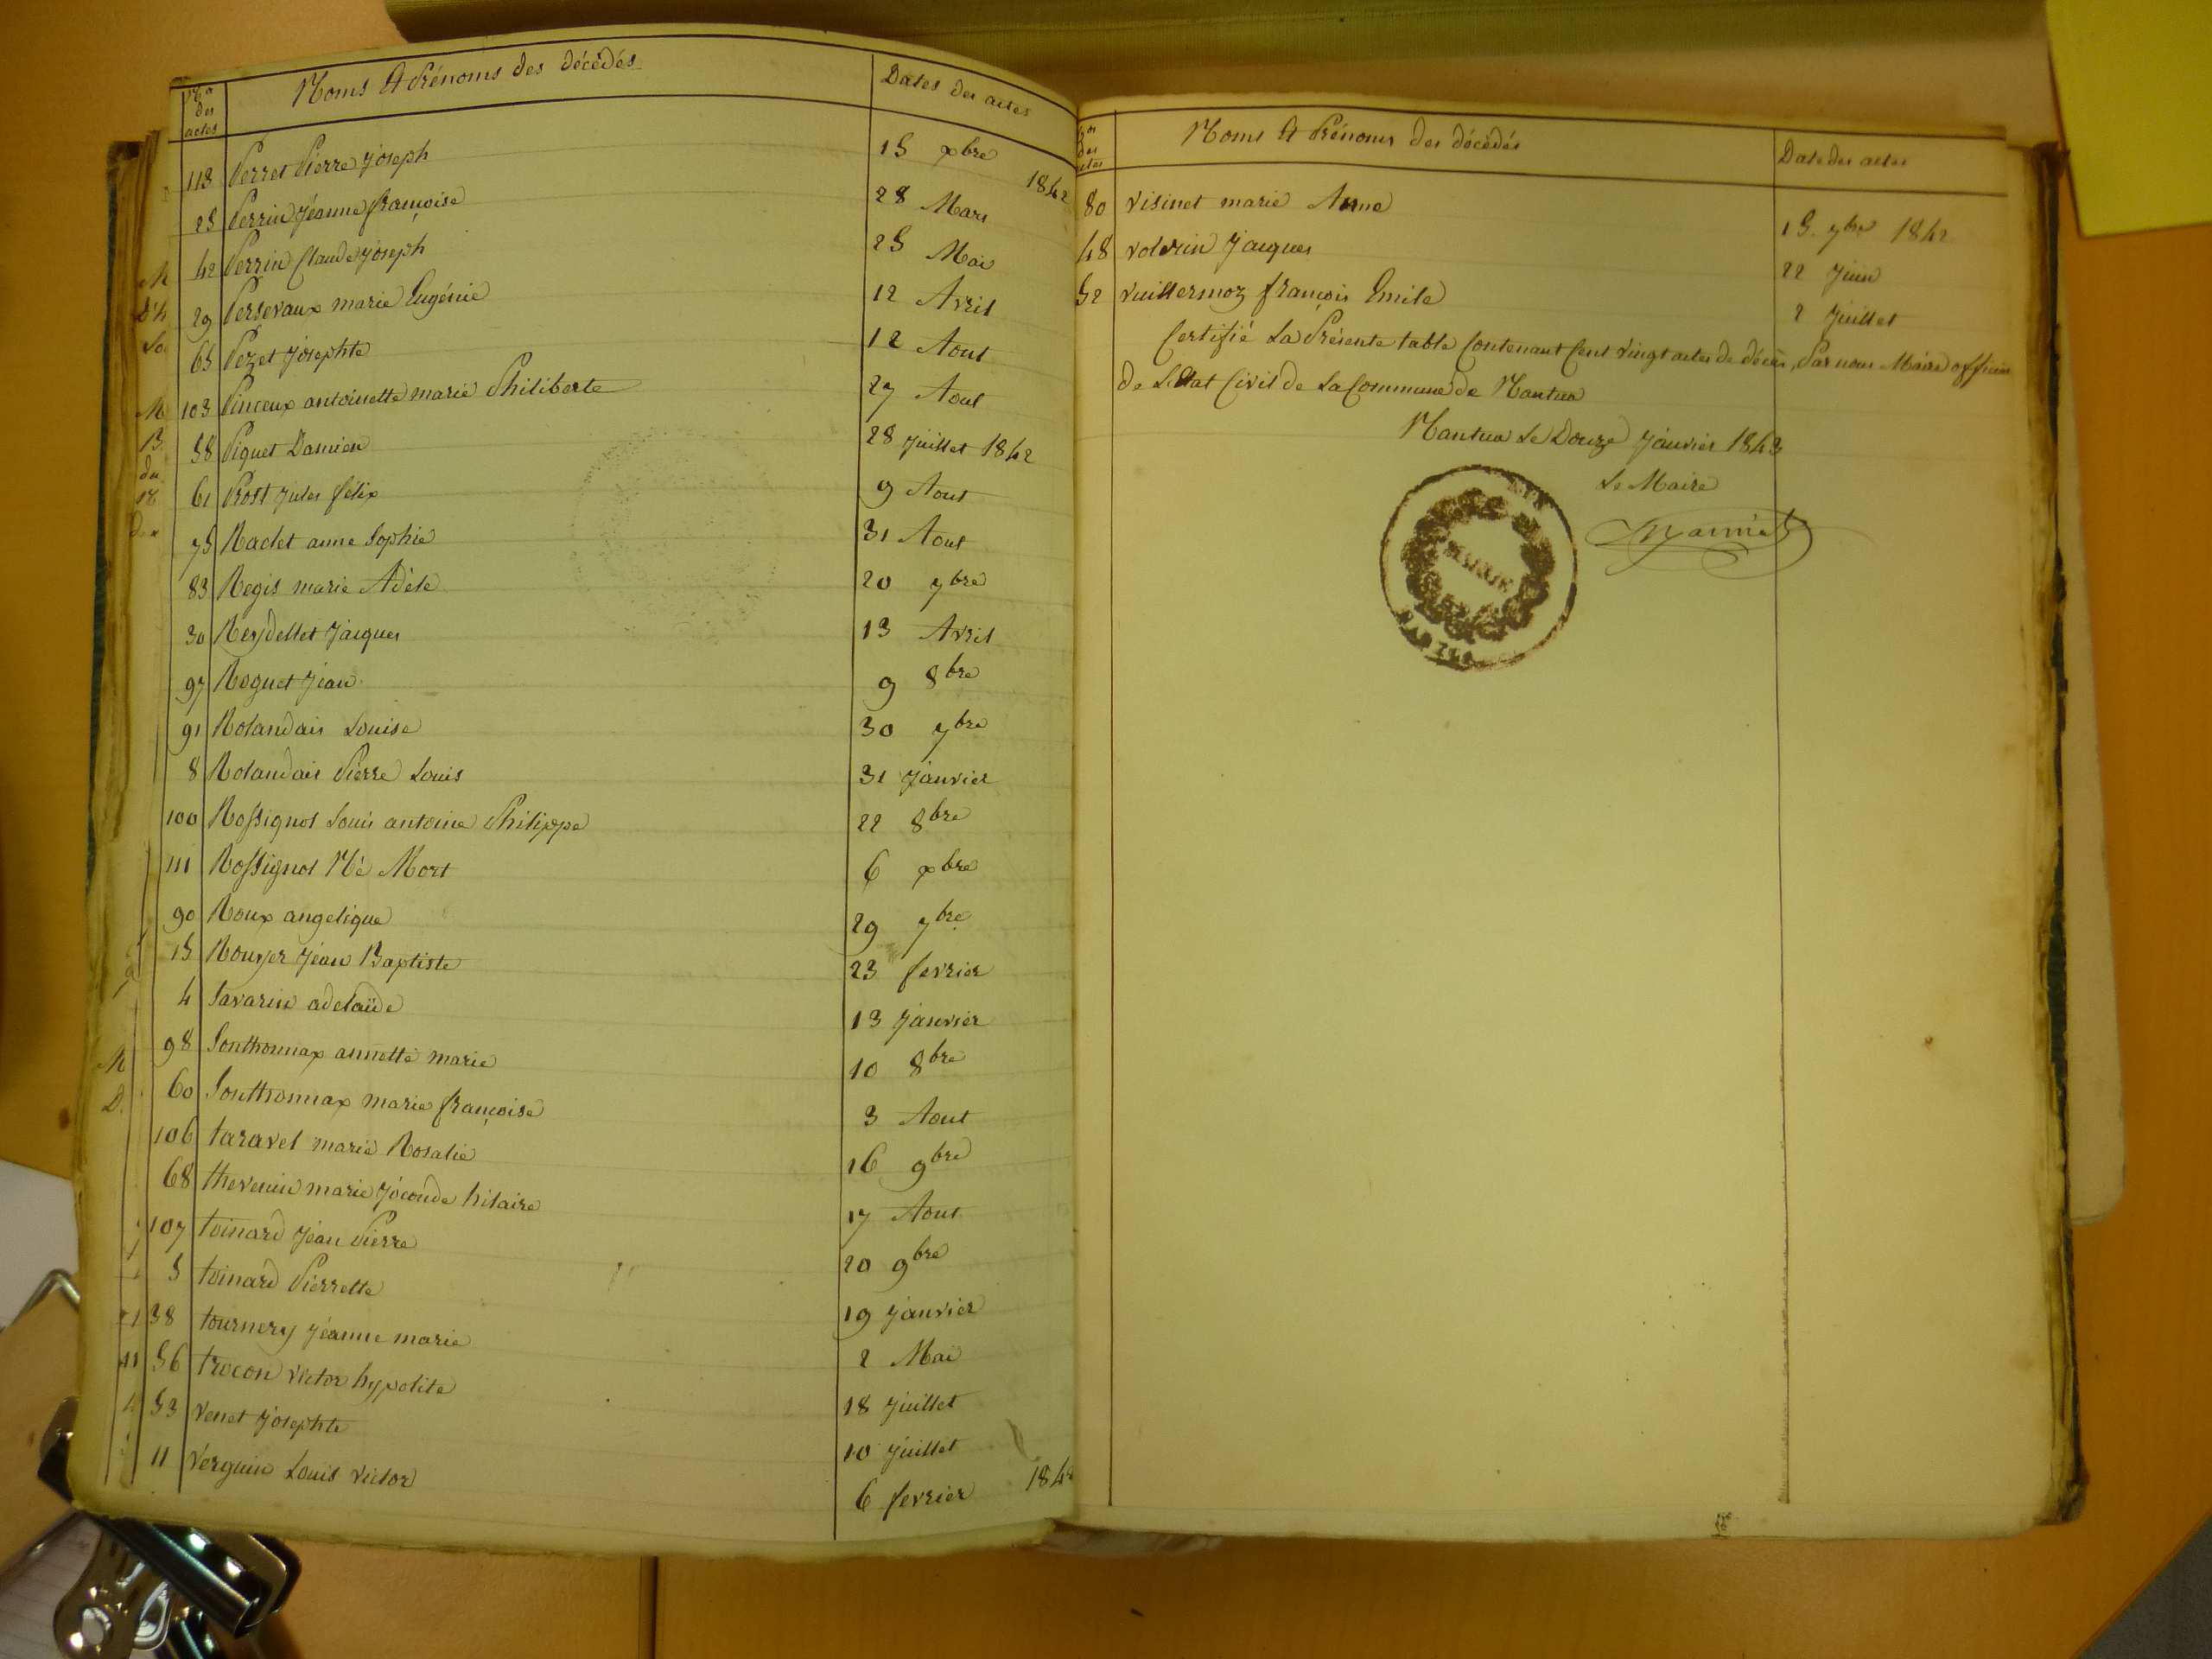 Nos des actes Noms Et Prénoms des décédés Dates des actes
118 Perret Pierre Joseph 15 xbre 1842
25 Perrin Jéanne françoise 28 Mars
42 Perrin Claude Joseph 25 Mai
29 Persevaux marie Eugénie 12 Avril
65 Pezet Josephte 12 Aout
103 Pinceux antoinette marie Philiberte 27 Aout
58 Piquet Damien 28 Juillet 1842
61 Prost Jules félix 9 Aout
75 Raclet anne Sophie 31 Aout
83 Regis marie Adèle 20 7bre
30 Reydellet Jacques 13 Avril
97 Roguet Jéan 9 8bre
91 Rolandais Louise 30 7bre
8 Rolandais Pierre Louis 31 Janvier
100 Rossignol Louis antoine Philippe 22 8bre
111 Rossignol Né Mort 6 xbre
90 Roux angelique 29 7bre
15 Rouyer Jéan Baptiste 23 fevrier
4 Savarin adelaïde 13 Janvier
98 Sonthonnax annette marie 10 8bre
60 Sonthonnax marie françoise 3 Aout
106 taravel marie Rosalie 16 9bre
68 thevenin marie Joconde hilaire 17 Aout
107 toinard Jéan Pierre 20 9bre
5 toinard Pierrette 19 Janvier
38 tournery Jéanne marie 2 Mai
56 trocon victor hypolite 18 Juillet
53 venet Josephte 10 Juillet
11 verguin Louis victor 6 fevrier 1842
Nos des actes Noms Et Prénoms des décédés Date des actes
80 visinet marie Anne 15 7bre 1842
48 volerin Jacques 22 Juin
52 vuillermoz françois Emile 2 Juillet
Certifié La Présente table Contenant Cent vingt actes de décès, Par nous Maire officier
de L'Etat Civil de La Commune de Nantua
Nantua Le Douze Janvier 1843
Le Maire
MAIRIE